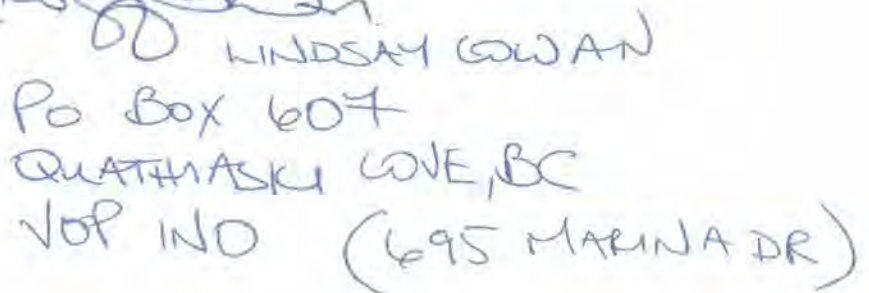 LINDSAY COWAN
PO BOX 607
QUATHIASKI COVE, BC
V0P 1N0 (695 MARINA DR)